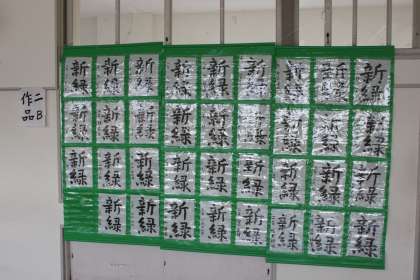 二B
作品
新緑 新緑 新緑 新緑 新緑 新緑 新緑 新緑 新緑
新緑 新緑 新緑 新緑 新緑 新緑 新緑 新緑 新緑
新緑 新緑 新緑 新緑 新緑 新緑 新緑 新緑 新緑
新緑 新緑 新緑 新緑 新緑 新緑 新緑 新緑